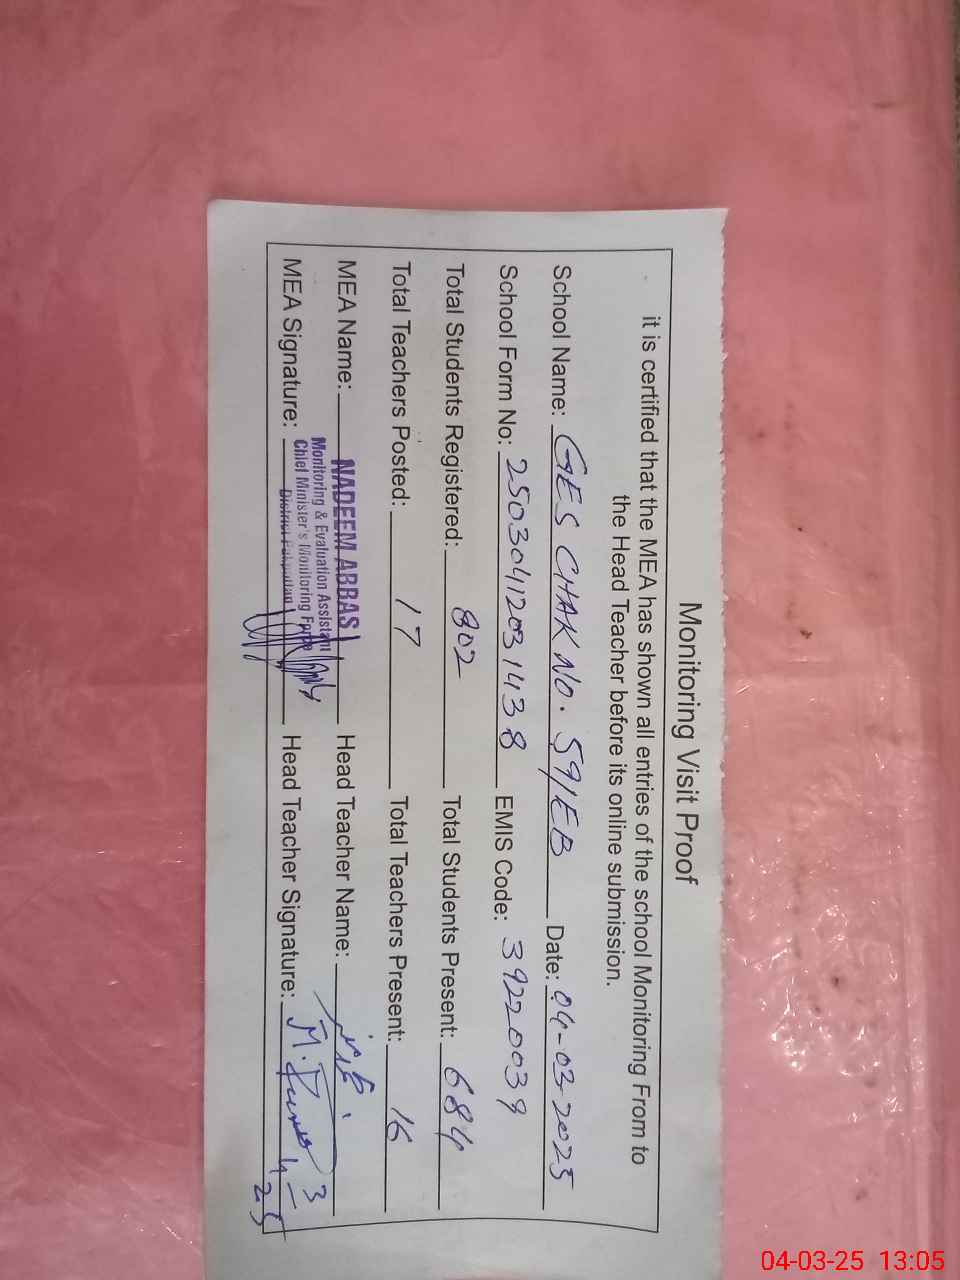 Monitoring Visit Proof
it is certified that the MEA has shown all entries of the school Monitoring From to
the Head Teacher before its online submission.
School Name: GES CHAK NO. 59/EB Date: 04-03-2025
School Form No: 25030412031438 EMIS Code: 39220039
Total Students Registered: 802 Total Students Present: 684
Total Teachers Posted: 17 Total Teachers Present: 16
MEA Name: NADEEM ABBAS Head Teacher Name:
Monitoring & Evaluation Assistant
Chief Minister's Monitoring Force
MEA Signature: District Pakpattan Head Teacher Signature: M.
04-03-25 13:05